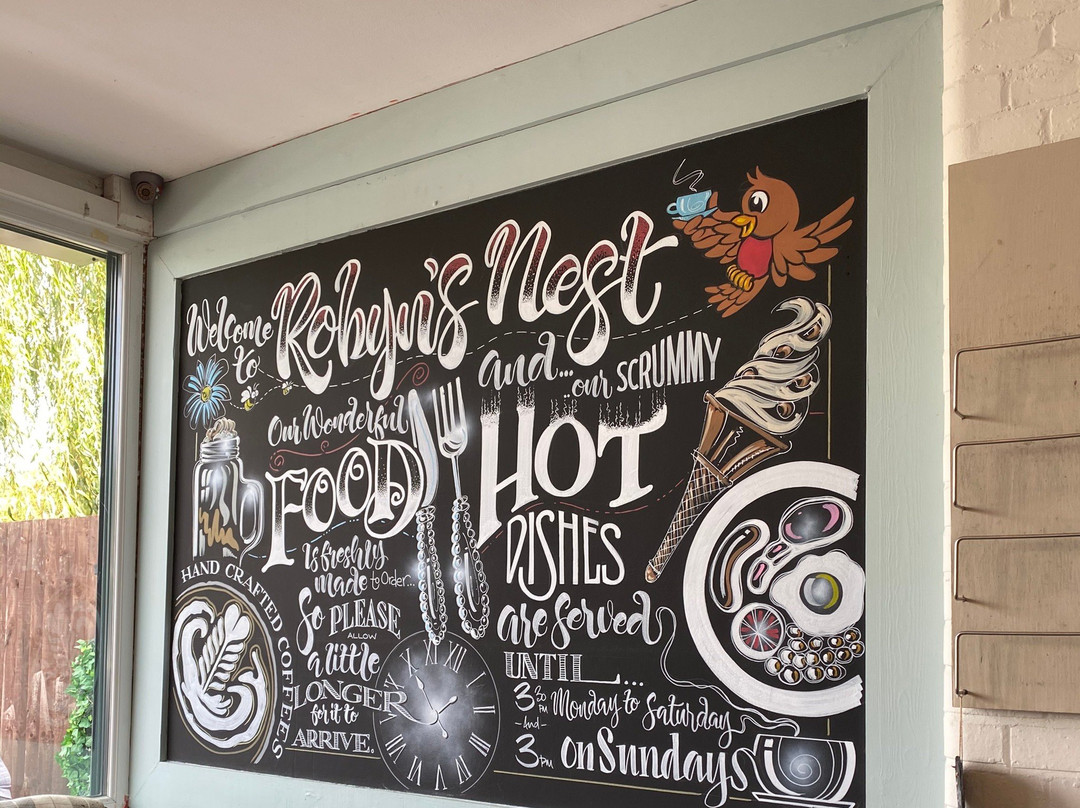 Welcome
to
Robyn's Nest
and... our SCRUMMY
Our Wonderful
FOOD
is freshly
made to Order...
So PLEASE
ALLOW
a little
LONGER
for it to
ARRIVE.
HOT
DISHES
are Served
UNTIL...
3.30 PM Monday to Saturday
-And-
3PM on Sundays
HAND CRAFTED COFFEES